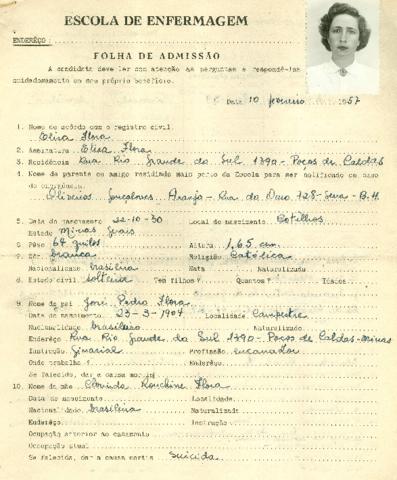 ESCOLA DE ENFERMAGEM
ENDERÊÇO:
FOLHA DE ADMISSÃO
A candidata deve ler com atenção as perguntas e respondê-las
cuidadosamente em seu próprio benefício.
Data 10 fevereiro 1957
1. Nome de acôrdo com o registro civil.
Elisa Flora
2. Assinatura. Elisa Flora
3. Residência Rua Rio Grande do Sul 1390 - Poços de Caldas
4. Nome de parente ou amigo residindo mais perto da Escola para ser notificado em caso
de emergência.
Gonçalves Araújo - Rua do Ouro 728 - Serra - B.H.
5. Data do nascimento 22-10-30 Local do nascimento Botelhos
Estado Minas Gerais
6. Pêso 64 quilos Altura 1,65 cm.
7. Côr. branca Religião Católica
Nacionalidade brasileira Nata Naturalizada
8. Estado civil solteira Tem filhos? Quantos? Idades
9. Nome do pai José Pedro Flora
Data do nascimento 23-3-1904 Localidade Campestre
Nacionalidade brasileiro Naturalizado
Enderêço Rua Rio Grande do Sul 1390 - Poços de Caldas - Minas
Instrução Ginasial Profissão encanador
Onde trabalha? Enderêço
Se falecido, dar a causa mortis
10. Nome da mãe Flora
Data do nascimento Localidade
Nacionalidade brasileira Naturalizada
Enderêço Instrução
Ocupação anterior ao casamento
Ocupação atual
Se falecida, dar a causa mortis suicida